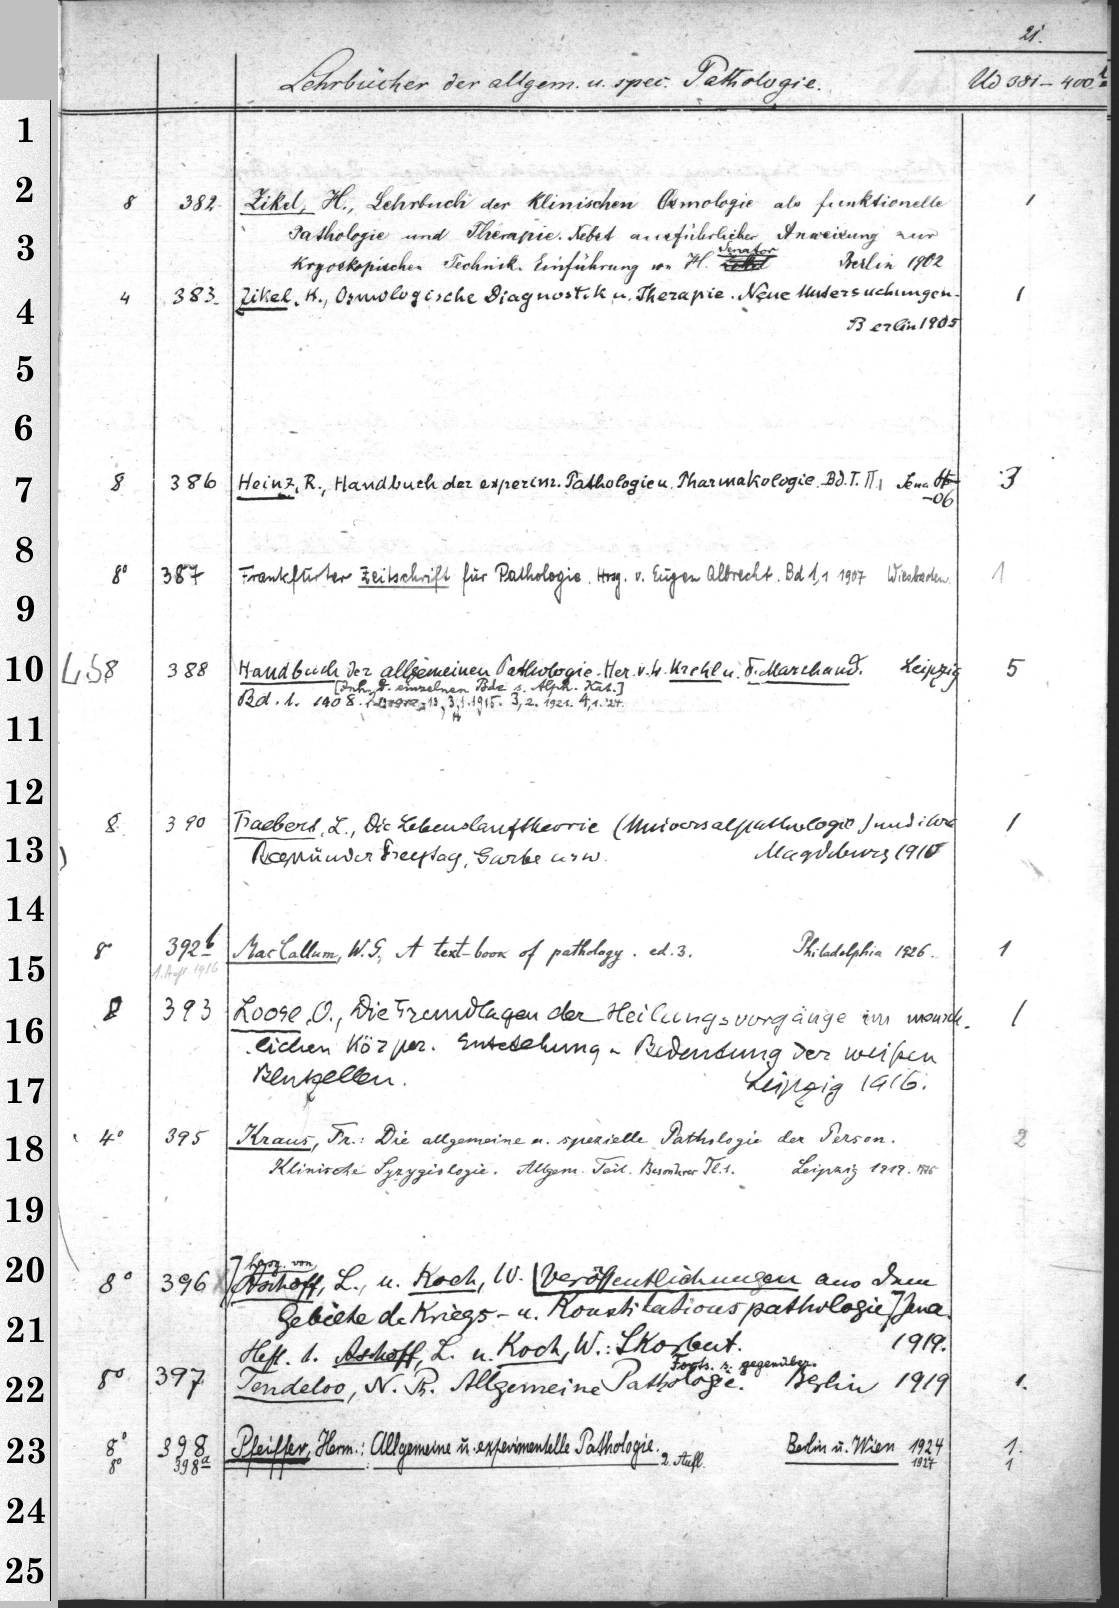 21.
Lehrbücher der allgem. u. spec. Pathologie. Ud 381-400
1
2
8 382. Zikel, H., Lehrbuch der klinischen Osmologie als funktionelle 1
3
Pathologie und Therapie. Nebst ausführlicher Anweisung zur
Senator
Kryoskopischen Technik. Einführung von H. Berlin 1902
4
4 383. Zikel, K., Osmologische Diagnostik u. Therapie. Neue Untersuchungen. 1
Berlin 1905
5
6
7
8 386 Heinz, R., Handbuch der experim. Pathologie u. Pharmakologie. Bd. I. II, Jena 3
-06
8
8° 387 Frankfurter Zeitschrift für Pathologie. Hrsg. v. Eugen Albrecht. Bd 1,1 1907 Wiesbaden. 1
9
10
LS 8 388 Handbuch der allgemeinen Pathologie. Her. v. L. Krehl u. F. Marchand. Leipzig 5
[Inh. d. einzelnen Bde s. Alph. Kat.]
Bd. 1. 1908. 3,1. 1915. 3,2. 1921. 4,1. '24.
11
12
8. 390 Traebert, L., Die Lebenslauftheorie (Universalpathologie) und ihre 1
13
Begründer Freytag, Garbe usw. Magdeburg 1910
14
15
8° 392b MacCallum, W. G., A text-book of pathology. ed. 3. Philadelphia 1926. 1
1. Aufl 1916
16
8 393 Loose, O., Die Grundlagen der Heilungsvorgänge im mensch- 1
lichen Körper. Entstehung u. Bedeutung der weißen
17
Blutzellen. Leipzig 1916.
18
4° 395 Kraus, Fr.: Die allgemeine u. spezielle Pathologie der Person. 2
Klinische Syzygiologie. Allgem. Teil. Besonderer Tl. 1. Leipzig 1919. 1926
19
20
hrsg. von
8° 396 Aschoff, L., u. Koch, W. [Veröffentlichungen aus dem
Gebiete d. Kriegs- u. Konstitutionspathologie] Jena
21
1919.
Heft. 1. Aschoff, L. u. Koch, W.: Skorbut.
Forts. s. gegenüber.
22
8° 397 Tendeloo, N. Ph. Allgemeine Pathologie. Berlin 1919 1.
23
8° 398 Pfeiffer, Herm.: Allgemeine u. experimentelle Pathologie. Berlin u. Wien 1924 1.
8° 398a 2. Aufl. 1927 1
24
25